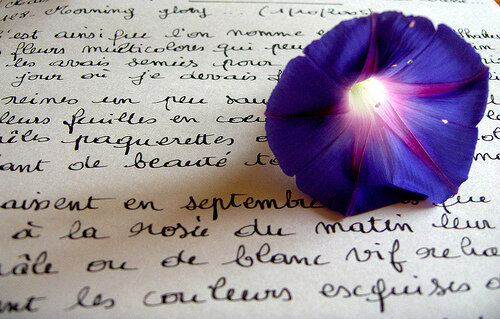 Morning glory (1/10/2005)
c'est ainsi que l'on nomme
fleurs multicolores qui
les avais semées pour
jour où je devais
reines un peu
leurs feuilles en
pâles paquerettes
ant de beauté
aissent en septembre que
à la rosée du matin leur
pâle ou de blanc vif
les couleurs exquises